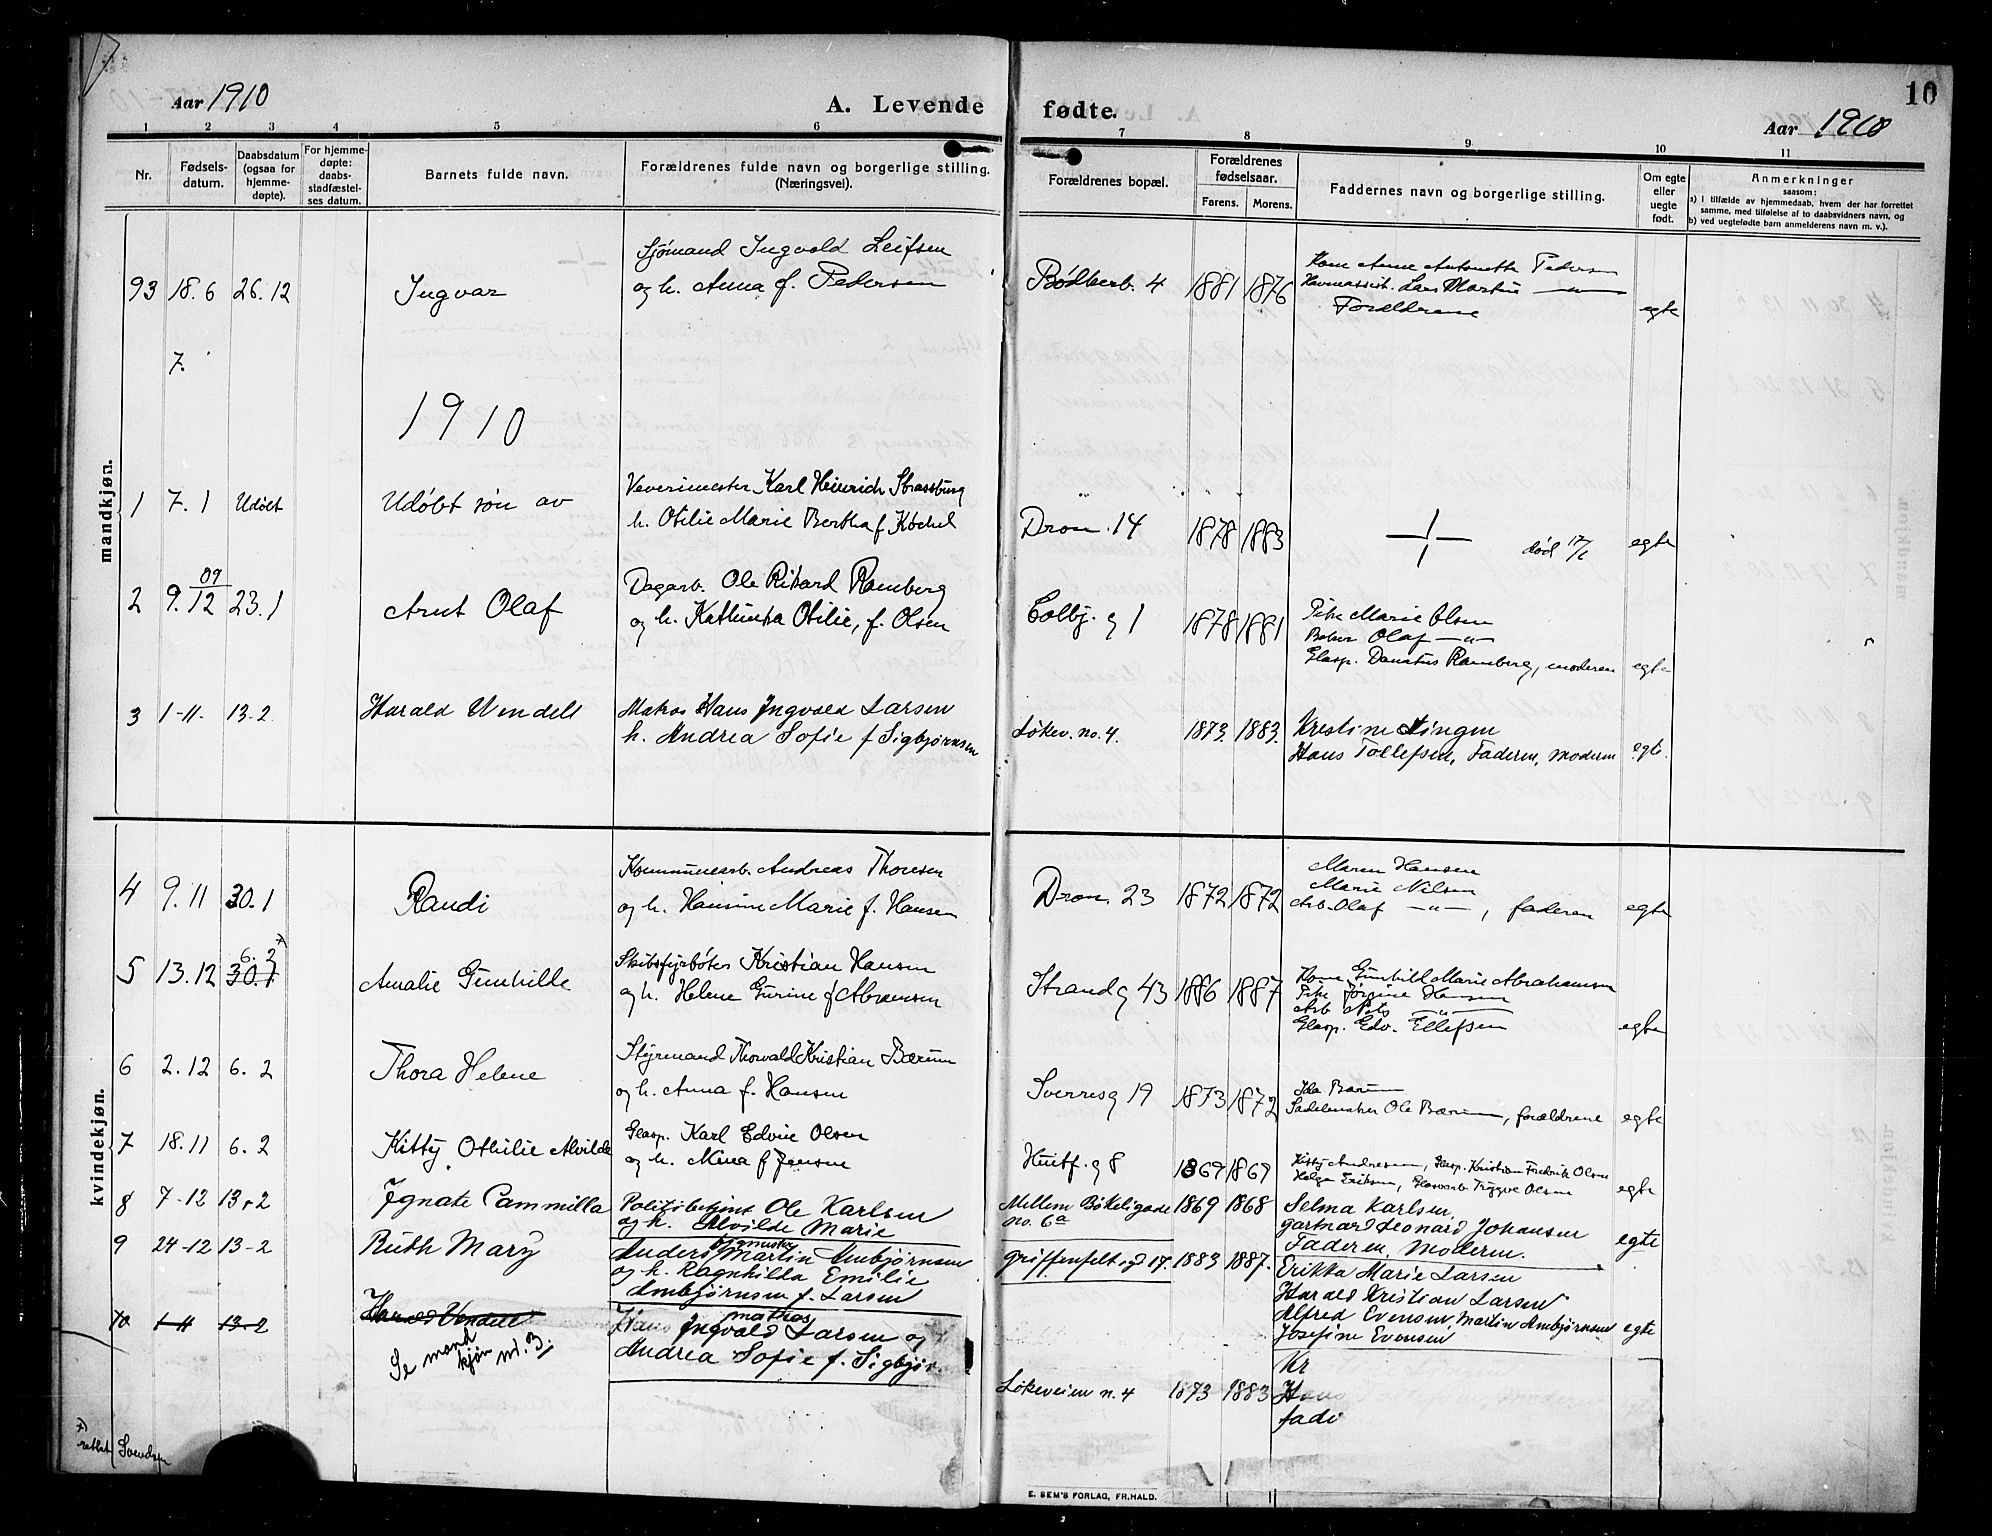 Aar 1910
A. Levende
fødte.
10
Aar 1910
1 2 3 4 5 6 7 8 9 10 11
Nr.
Fødsels-
datum.
Daabsdatum
(ogsaa for
hjemme-
døpte).
For hjemme-
døpte:
daabs-
stadfæstel-
ses datum.
Barnets fulde navn.
Forældrenes fulde navn og borgerlige stilling.
(Næringsvei).
Forældrenes bopæl.
Forældrenes
fødselsaar.
Farens. Morens.
Faddernes navn og borgerlige stilling.
Om egte
eller
uegte
født.
Anmerkninger
saasom:
a) i tilfælde av hjemmedaab, hvem der har forrettet
samme, med tilføielse af to daabsvidners navn, og
b) ved uegtefødte barn anmelderens navn m. v.).
mandkjøn.
93 18.6 26.12 Ingvar
Sjømand Ingvald Leifsen
og h. Anna f. Pedersen
Bødkerb. 4 1881 1876
Kone Anne Antonette Pedersen
Lars Martin —„—
Forældrene
egte
7.
1910
1 7.1 Udøbt Udøbt søn av
Vævermester Karl Heinrich Strassburg
h. Otilie Marie Bertha f. Køchel
Dron. 14 1878 1883 død 17/1 egte
2 9.12 09 23.1 Arnt Olaf
Dagarb. Ole Rikard Ramberg
og h. Kathinka Otilie, f. Olsen
Colbj. g 1 1878 1881
Pike Marie Olsen
Olaf —„—
Glasp. Donatus Ramberg, moderen egte
3 1-11. 13.2 Harald Wendell
Matros Hans Ingvald Larsen
h. Andrea Sofie f Sigbjørnsen
Løkev. no. 4. 1873. 1883.
Kristine
Hans Tollefsen, Faderen, moderen egte.
kvindekjøn.
4 9.11 30.1 Randi
Kommunearb. Andreas Thomsen
og h. Hansine Marie f. Hansen
Dron. 23 1872 1872
Maren Hansen
Marie Nilsen
Arb. Olaf —„—, faderen egte
5 13.12 30.1 6.2 x) Amalie Gunhilde
Skibsfyrbøter Kristian Hansen
og h. Helene Gurine f Abramsen
Strandg 43 1886 1887
Kone Gunhild Marie Abrahamsen
Pike Jørgine Hansen
Arb Nils —„—
Glasp. Edv. Ellefsen
egte
6 2.12 6.2 Thora Helene
Styrmand Thorvald Kristian Bærum
og h. Anna f. Hansen
Sverresg 19 1873 1872
Ida Bærum
Sadelmaker Ole Bærum, forældrene egte
7 18.11 6.2 Kitty Othilie Alvilde
Glasp. Karl Edvin Olsen
og h. Mina f Jensen
Huitf. g 8 1869 1869
Kitty Andresen, Glasp. Kristian Fredrik Olsen
Helga Eriksen, Glasverb. Trygve Olsen egte
8 7-12 13.2 Ignate Cammilla
Politibetjent Ole Karlsen
og h. Alvilde Marie
Mellem Bøkeligade
no. 6a
1869 1868
Selma Karlsen,
gartnar Leonard Johansen
Faderen, Moderen.
egte
9 24-12 13-2 Ruth Mary
Anders Martin Ambjørnsen
og h. Ragnhilda Emilie
Ambjørnsen f. Larsen
Griffenfeltsgd 17. 1883 1887.
Erikka Marie Larsen
Harald Kristian Larsen
Alfred Evensen, Martin Ambjørnsen
Josefine Evensen
egte
10 1-11 13-2 Harald Vendell
Se mand
kjøn nr. 3.
matros
Hans Ingvald Larsen og
Andrea Sofie f. Sigbjør
Løkeveien n. 4 1873 1883
Kr
Hans
fade
x)
rettet Svendsen
E. SEM'S FORLAG, FR.HALD.